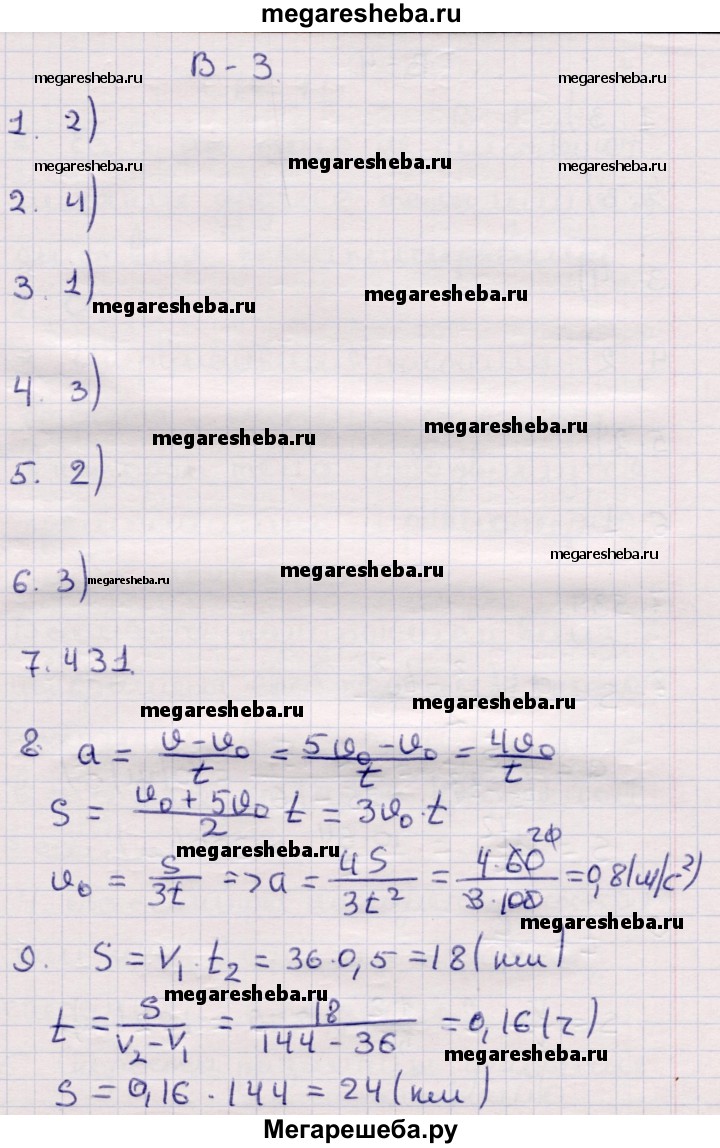 megaresheba.ru
В - 3
megaresheba.ru megaresheba.ru
1. 2)
megaresheba.ru megaresheba.ru megaresheba.ru
2. 4)
3. 1)
megaresheba.ru megaresheba.ru
4. 3)
megaresheba.ru megaresheba.ru
5. 2)
megaresheba.ru
6. 3) megaresheba.ru megaresheba.ru
7. 431.
megaresheba.ru megaresheba.ru
8. a = (υ - υ₀)/t = (5υ₀ - υ₀)/t = 4υ₀/t
S = (υ₀ + 5υ₀)/2 t = 3υ₀·t
megaresheba.ru
υ₀ = S/3t => a = 4S/3t² = 4·60/3·100 = 0,8 (м/с²)
megaresheba.ru
9. S = V₁·t₂ = 36·0,5 = 18 (км)
megaresheba.ru
t = S/(V₂ - V₁) = 18/(144 - 36) = 0,16 (ч)
megaresheba.ru
S = 0,16 · 144 = 24 (км)
Мегарешеба.ру